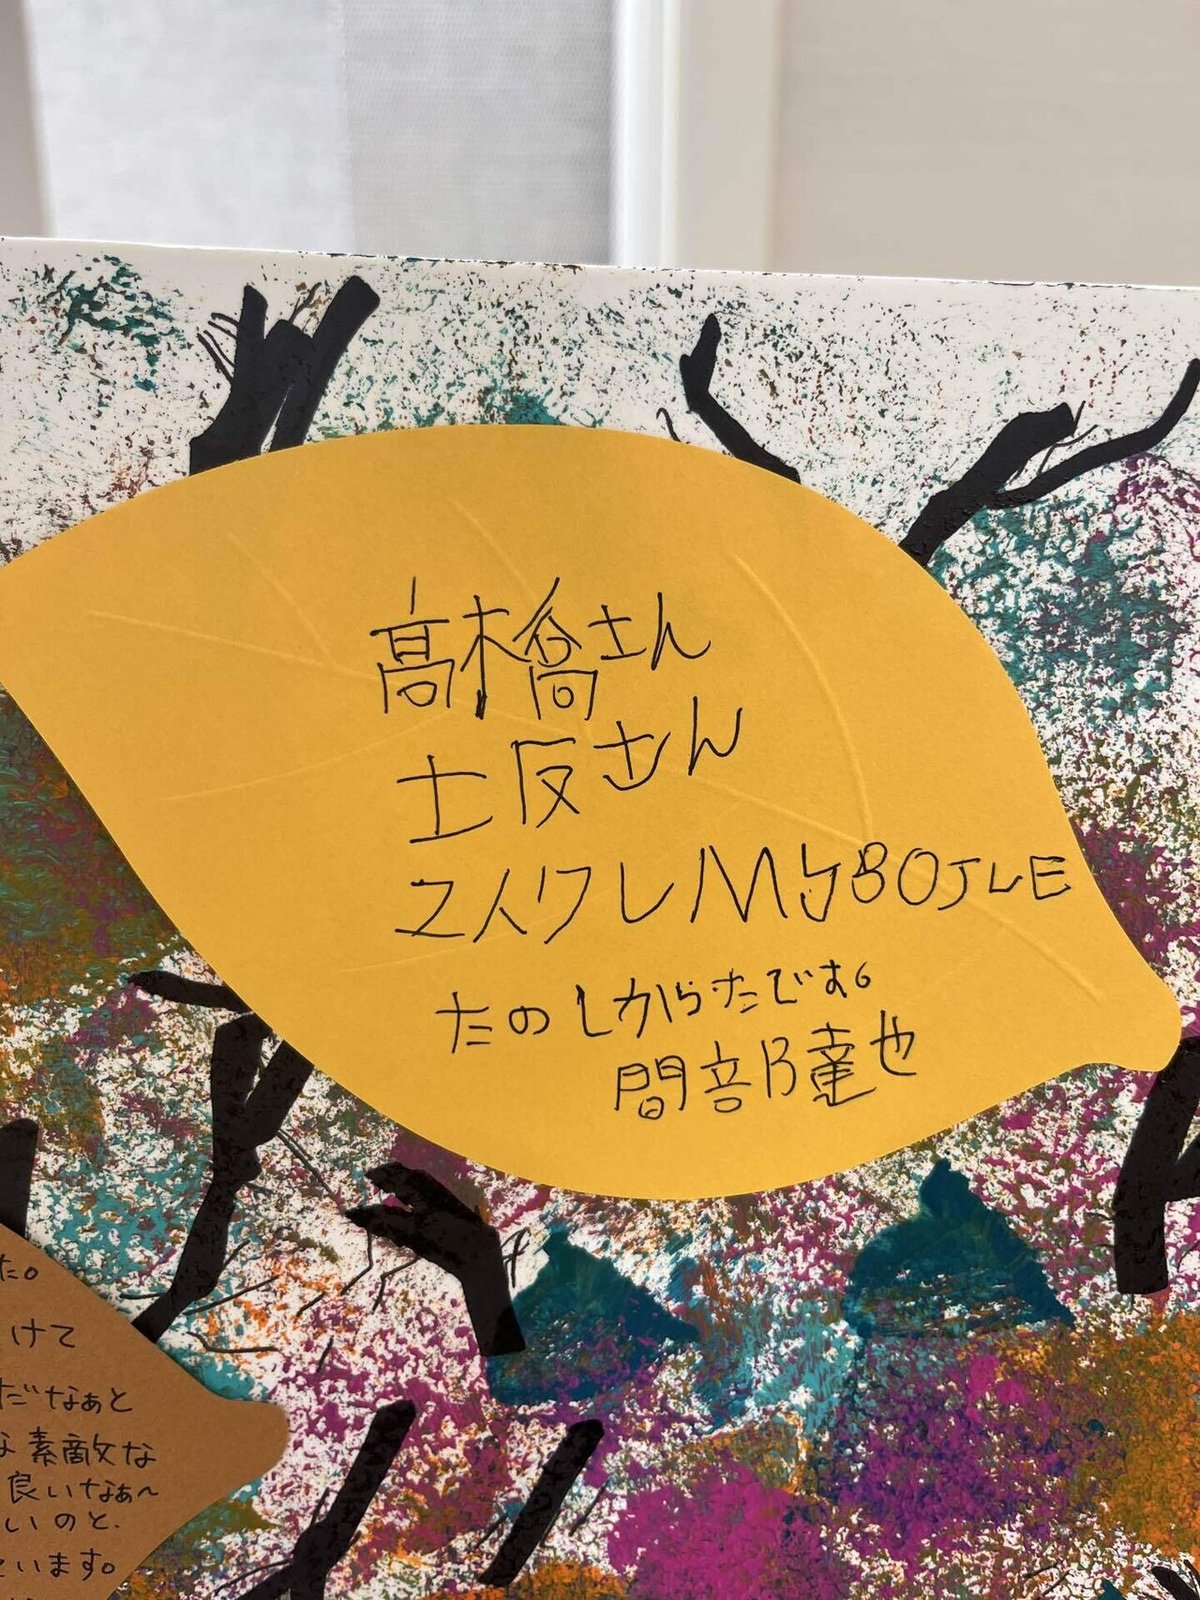 髙橋さん
土反さん
マイクレMyBOJLE
たのしからたです。
間部達也
た。
けて
だなぁと
な素敵な
良いなぁ〜
いのと、
います。